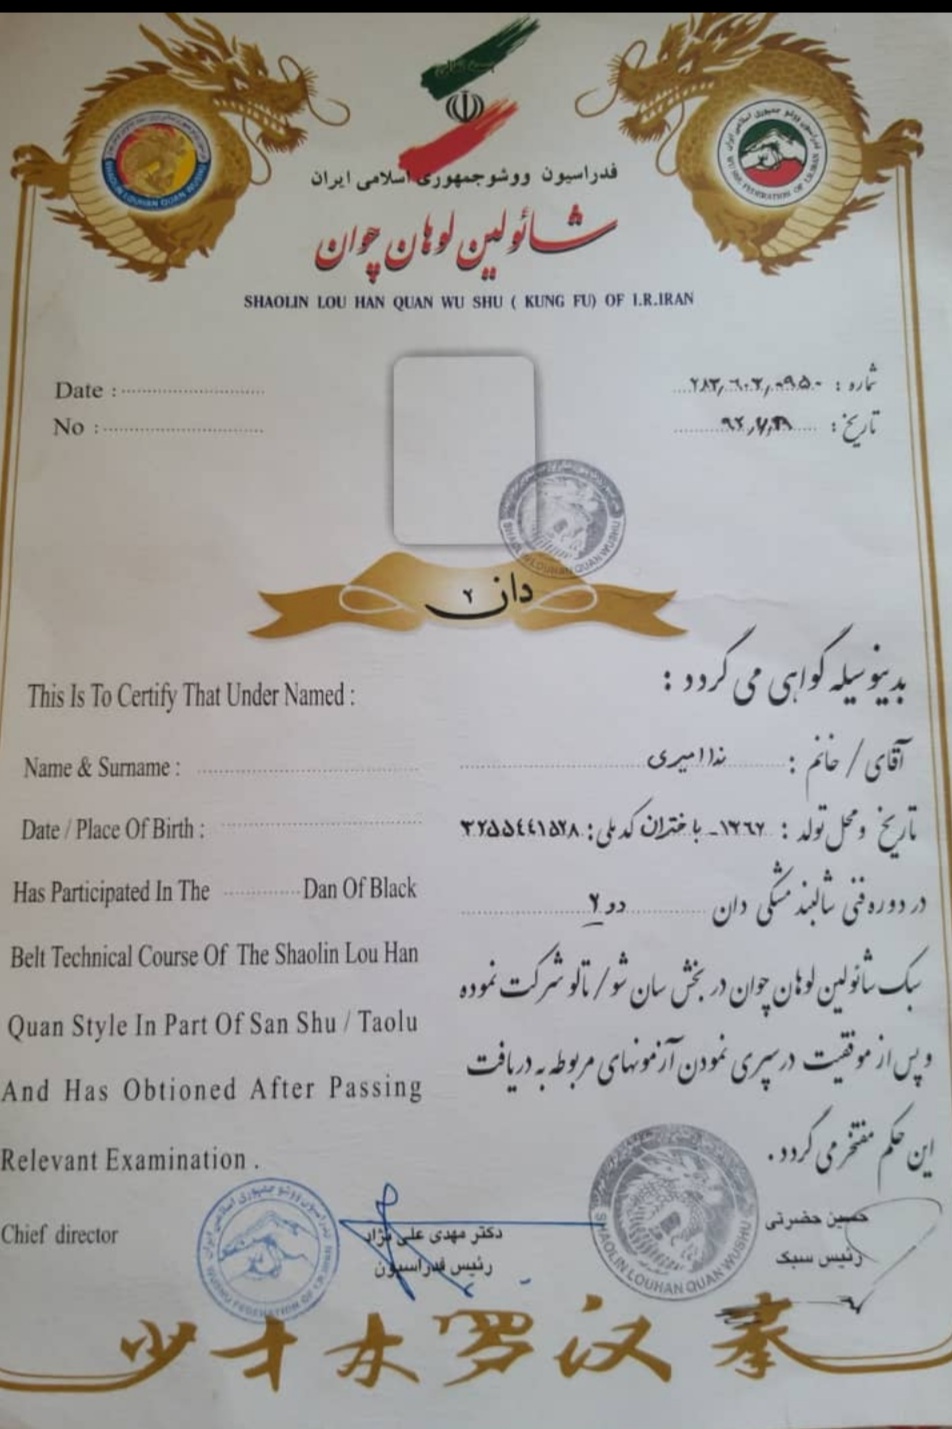 فدراسیون ووشو جمهوری اسلامی ایران
شائولین لوهان چوان
SHAOLIN LOU HAN QUAN WU SHU ( KUNG FU) OF I.R.IRAN
Date :
No :
شماره :
تاریخ :
دان ۲
This Is To Certify That Under Named :
بدینوسیله گواهی می گردد :
Name & Surname :
آقای / خانم : ندا امیری
Date / Place Of Birth :
تاریخ و محل تولد : ۱۳۶۷- باختران کد ملی : ۳۲۵۵۴۴۱۵۲۸
Has Participated In The ............ Dan Of Black
در دوره فنی شالبند مشکی دان دو ۲
Belt Technical Course Of The Shaolin Lou Han
سبک شائولین لوهان چوان در بخش سان شو / تالو شرکت نموده
Quan Style In Part Of San Shu / Taolu
و پس از موفقیت در سپری نمودن آزمونهای مربوطه به دریافت
And Has Obtioned After Passing
این حکم مفتخر می گردد .
Relevant Examination .
Chief director
دکتر مهدی علی نژاد
رئیس فدراسیون
حسین حضرتی
رئیس سبک
SHAOLIN LOUHAN QUAN WUSHU
WUSHU FEDERATION OF I.R.IRAN
少林罗汉拳